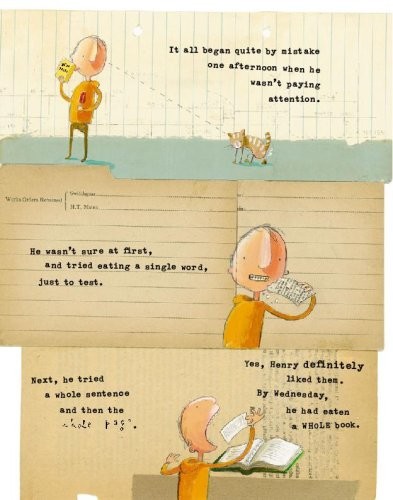 It all began quite by mistake
one afternoon when he
wasn't paying
attention.
Works Orders Received
H.T. Mains
He wasn't sure at first,
and tried eating a single word,
just to test.
Next, he tried
a whole sentence
and then the
whole page.
Yes, Henry definitely
liked them.
By Wednesday,
he had eaten
a WHOLE book.